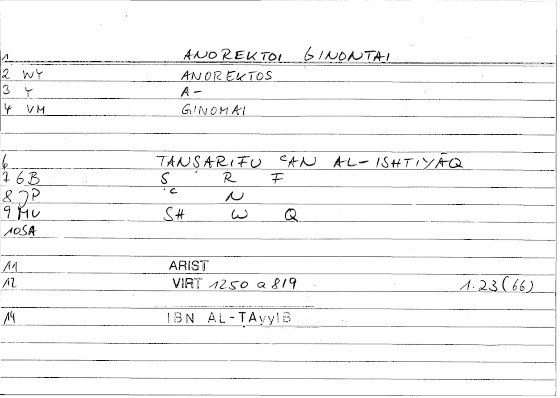 1 ANOREKTOI GINONTAI
2 WY ANOREKTOS
3 Y A-
4 VM GINOMAI
6 TANṢARIFU ʿAN AL-ISHTIYĀQ
7 6B Ṣ R F
8 JP ʿ N
9 MU SH W Q
10 SA
11 ARIST
12 VIRT 1250 a 819 1.23(66)
14 IBN AL-TAyyIB